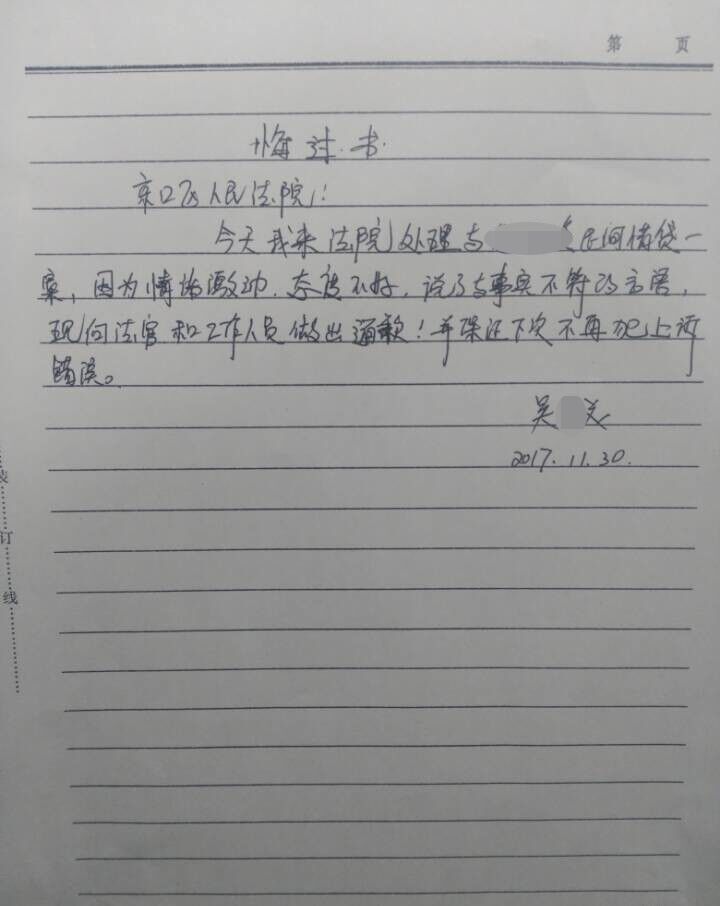 第 页
悔过书
京口区人民法院:
今天我来法院处理与 民间借贷一
案,因为情绪激动,态度不好,说了与事实不符的言语,
现向法官和工作人员做出道歉!并保证下次不再犯上诉
错误。
吴 美
2017.11.30.
装
订
线